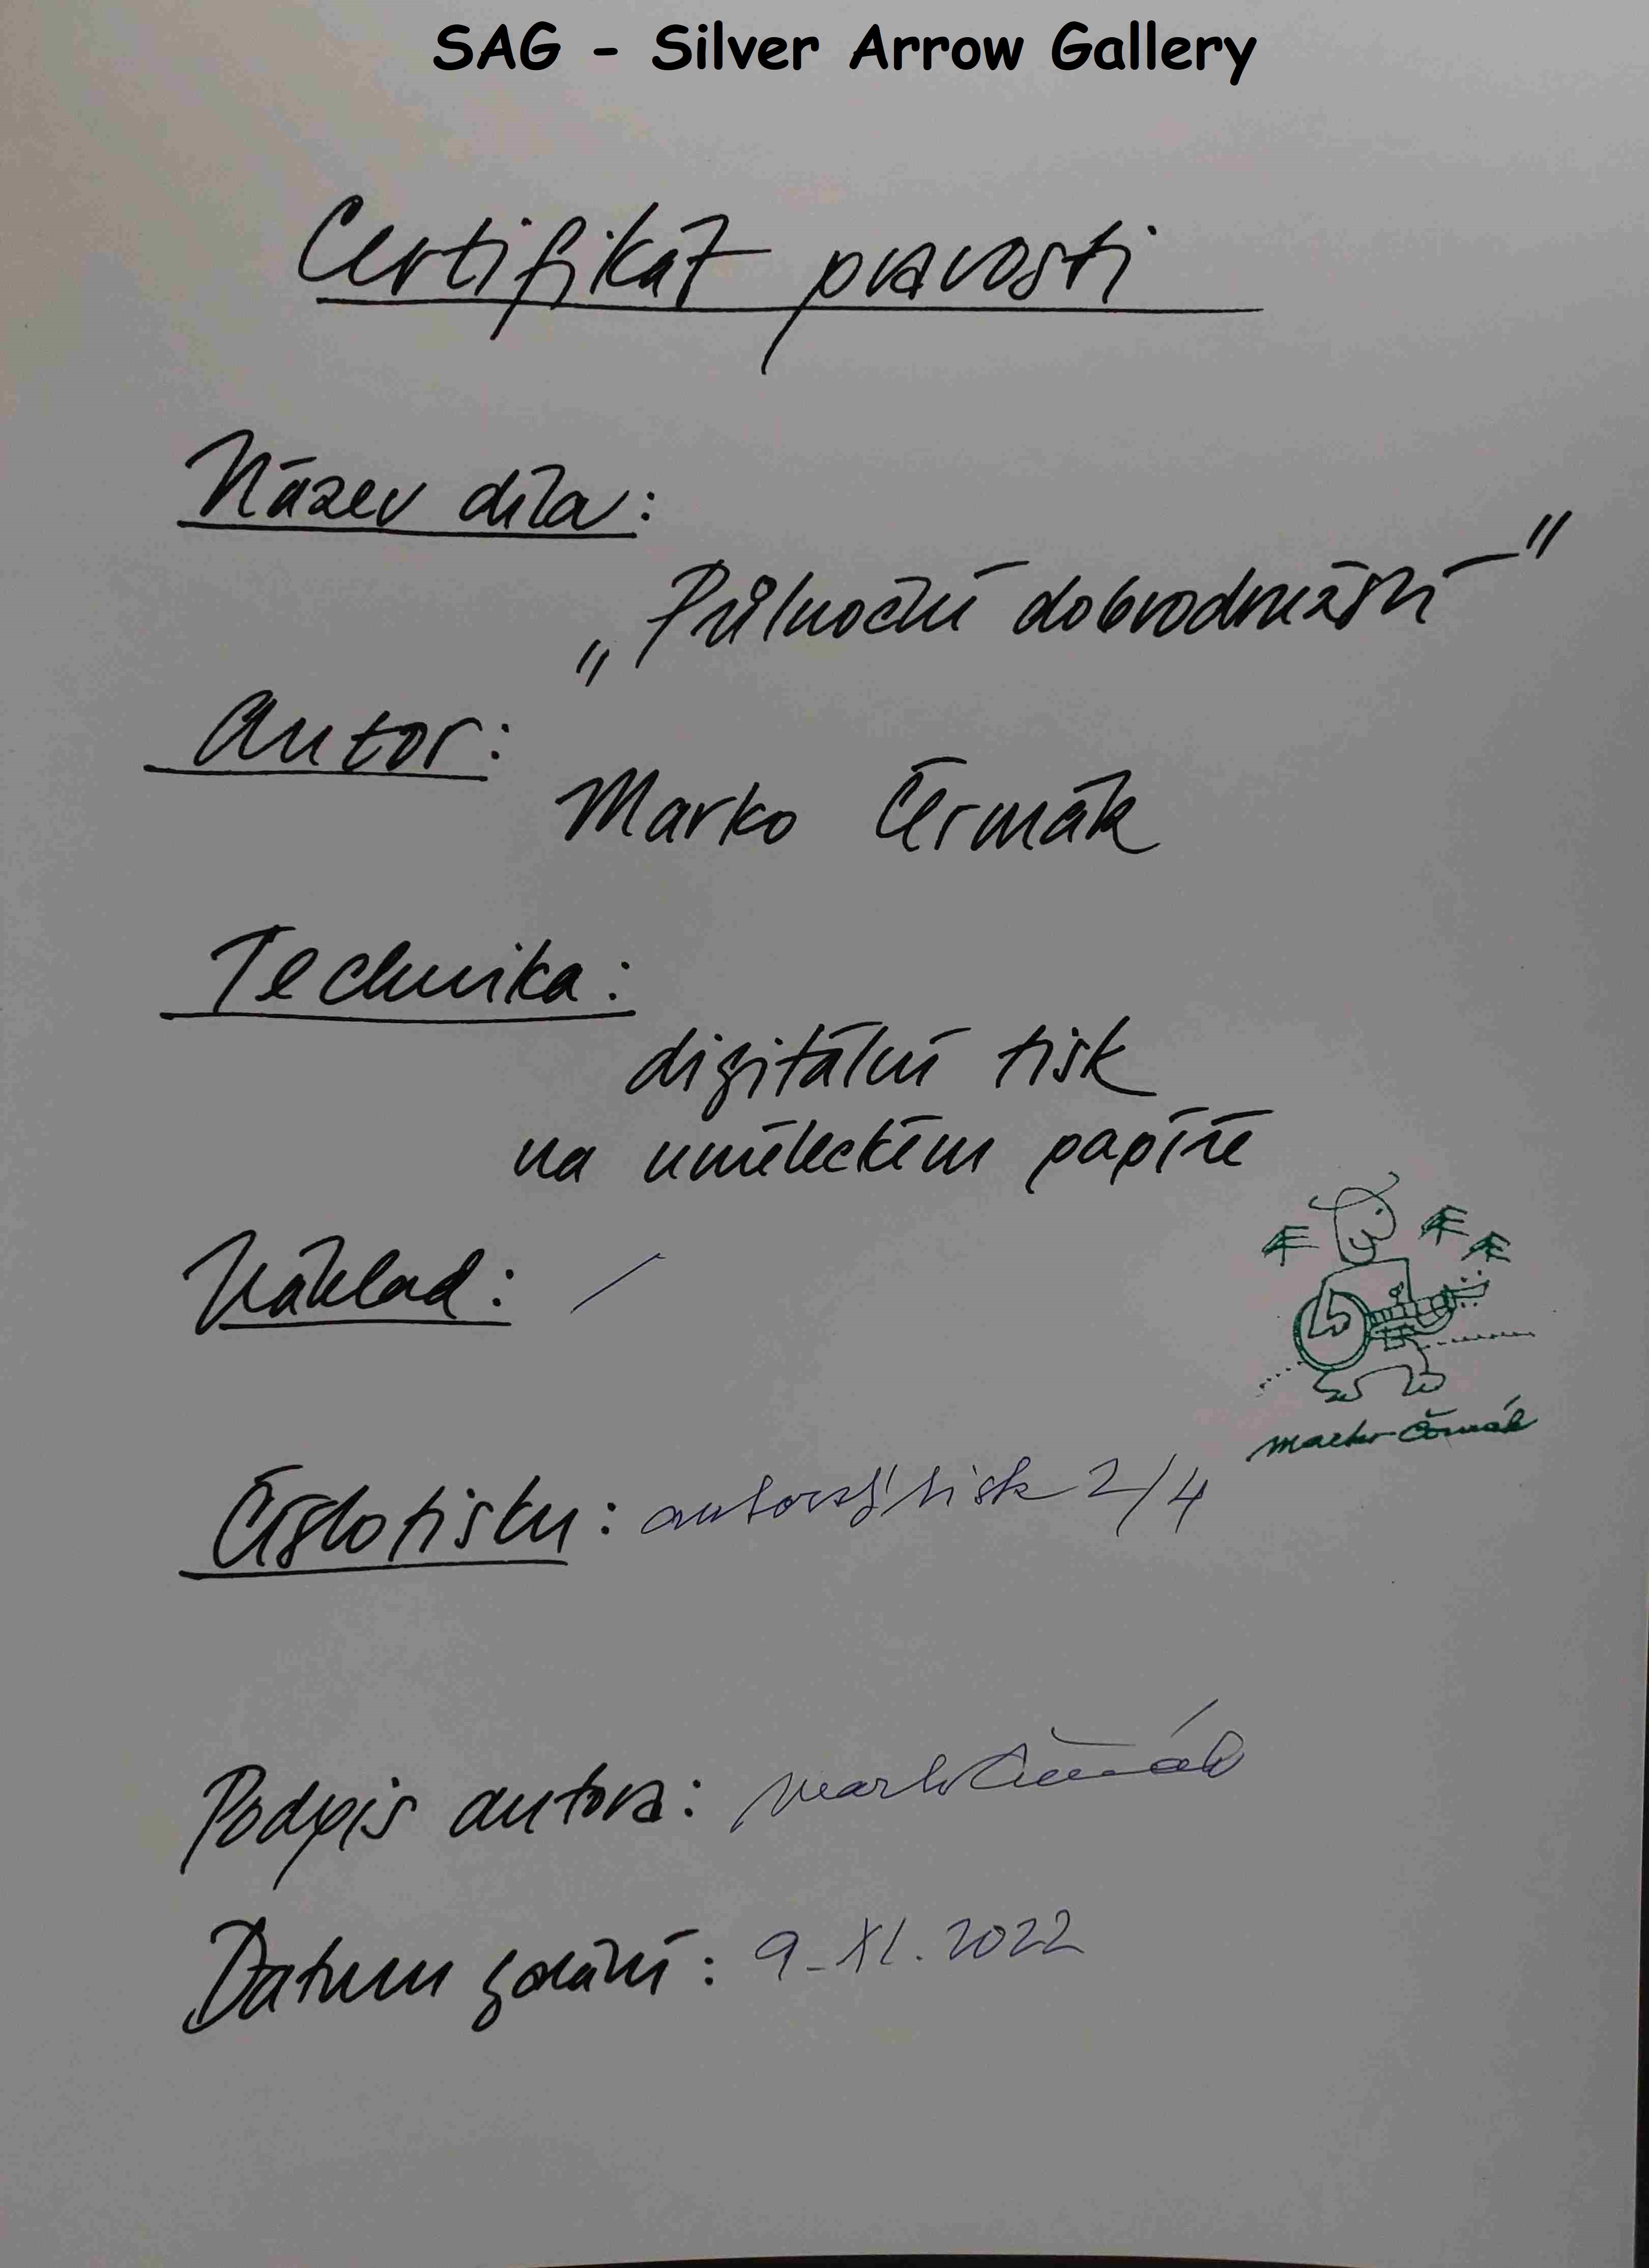 SAG - Silver Arrow Gallery
Certifikát pravosti
Název díla:
„Půlnoční dobrodružství"
Autor:
Marko Čermák
Technika:
digitální tisk
na uměleckém papíře
Náklad: /
Marko Čermák
Číslo tisku: autorský tisk 2/4
Podpis autora: Marko Čermák
Datum vydání: 9. XI. 2022